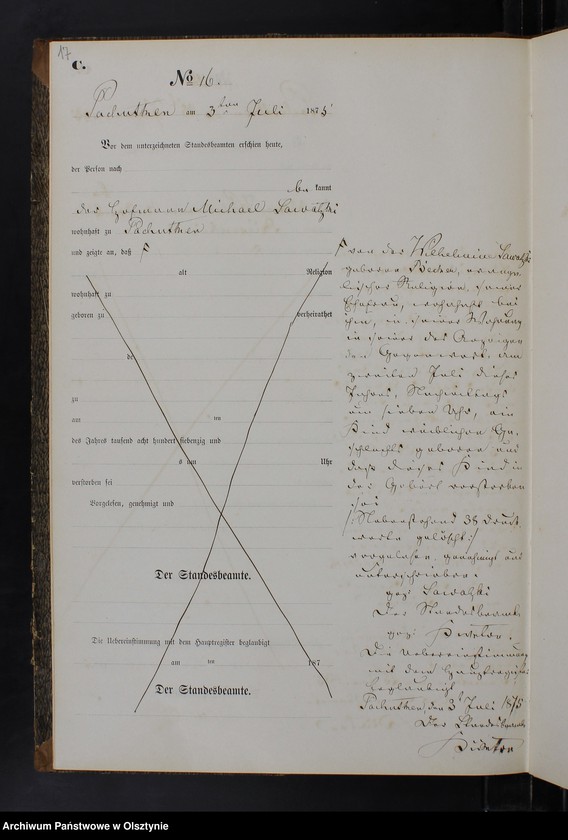 17
C.
No 16.
Pachutken am 3ten Juli 1875
Vor dem unterzeichneten Standesbeamten erschien heute,
der Person nach
be kannt
der Hofmann Michael Sawatzki
wohnhaft zu Pachutken
und zeigte an, daß
alt Religion
wohnhaft zu
geboren zu verheirathet
de
zu
am ten
des Jahres tausend acht hundert siebenzig und
s um Uhr
verstorben sei
Vorgelesen, genehmigt und
Der Standesbeamte.
Die Uebereinstimmung mit dem Hauptregister beglaubigt
am ten 187
Der Standesbeamte.
von der Wilhelmine Sawatzki
geborene Becker, evange
lischer Religion, seiner
Ehefrau, wohnhaft bei
ihm, in seiner Wohnung
in seiner des Anzeigen
den Gegenwart am
zweiten Juli dieses
Jahres, Nachmittags
um sieben Uhr, ein
Kind weiblichen Ge
schlechts geboren und
daß dieses Kind in
der Geburt verstorben
sei
/: Nebenstehend 38 Druck
worte gelöscht :/
vorgelesen, genehmigt und
unterschrieben.
gez Sawatzki
Der Standesbeamte
gez.
Die Uebereinstimmung
mit dem Hauptregister
beglaubigt
Pachutken, den 3t Juli 1875
Der Standesbeamte
Archiwum Państwowe w Olsztynie